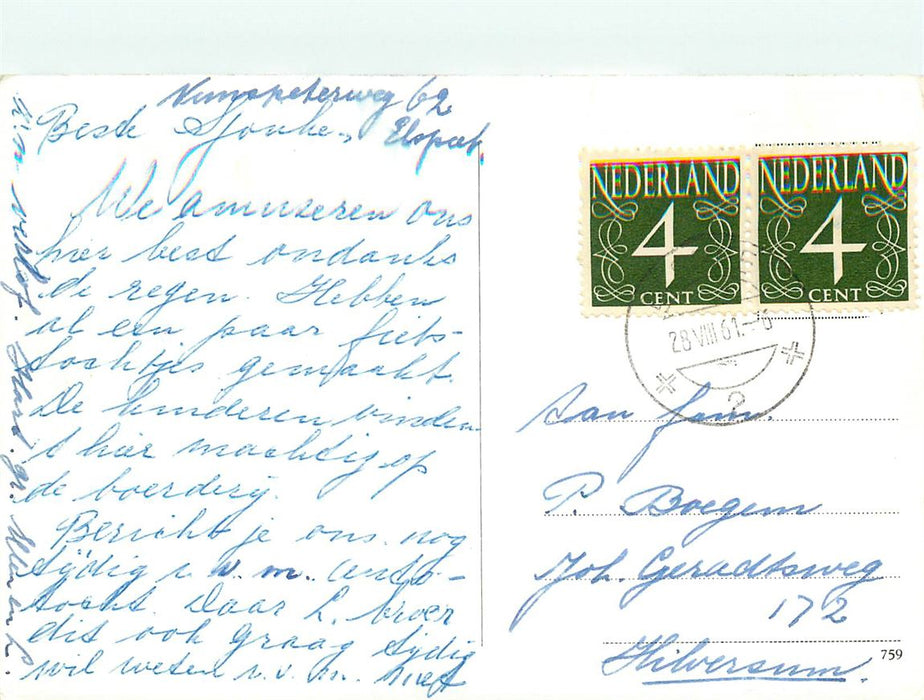 Nunspeterweg 62
Elspeet
Beste Sjouke,
We amuseren ons
hier best ondanks
de regen. Hebben
al een paar fiets-
tochtjes gemaakt.
De kinderen vinden
't hier machtig op
de boerderij.
Bericht je ons nog
tijdig i.v.m. auto-
tocht. Daar L. broer
dit ook graag tijdig
wil weten i.v.m. met
z'n verlof. Hart. gr.
NEDERLAND
4
CENT
NEDERLAND
4
CENT
28 VIII 61
2
Aan fam.
P. Boegem
Joh. Geradtsweg
172
Hilversum.
759